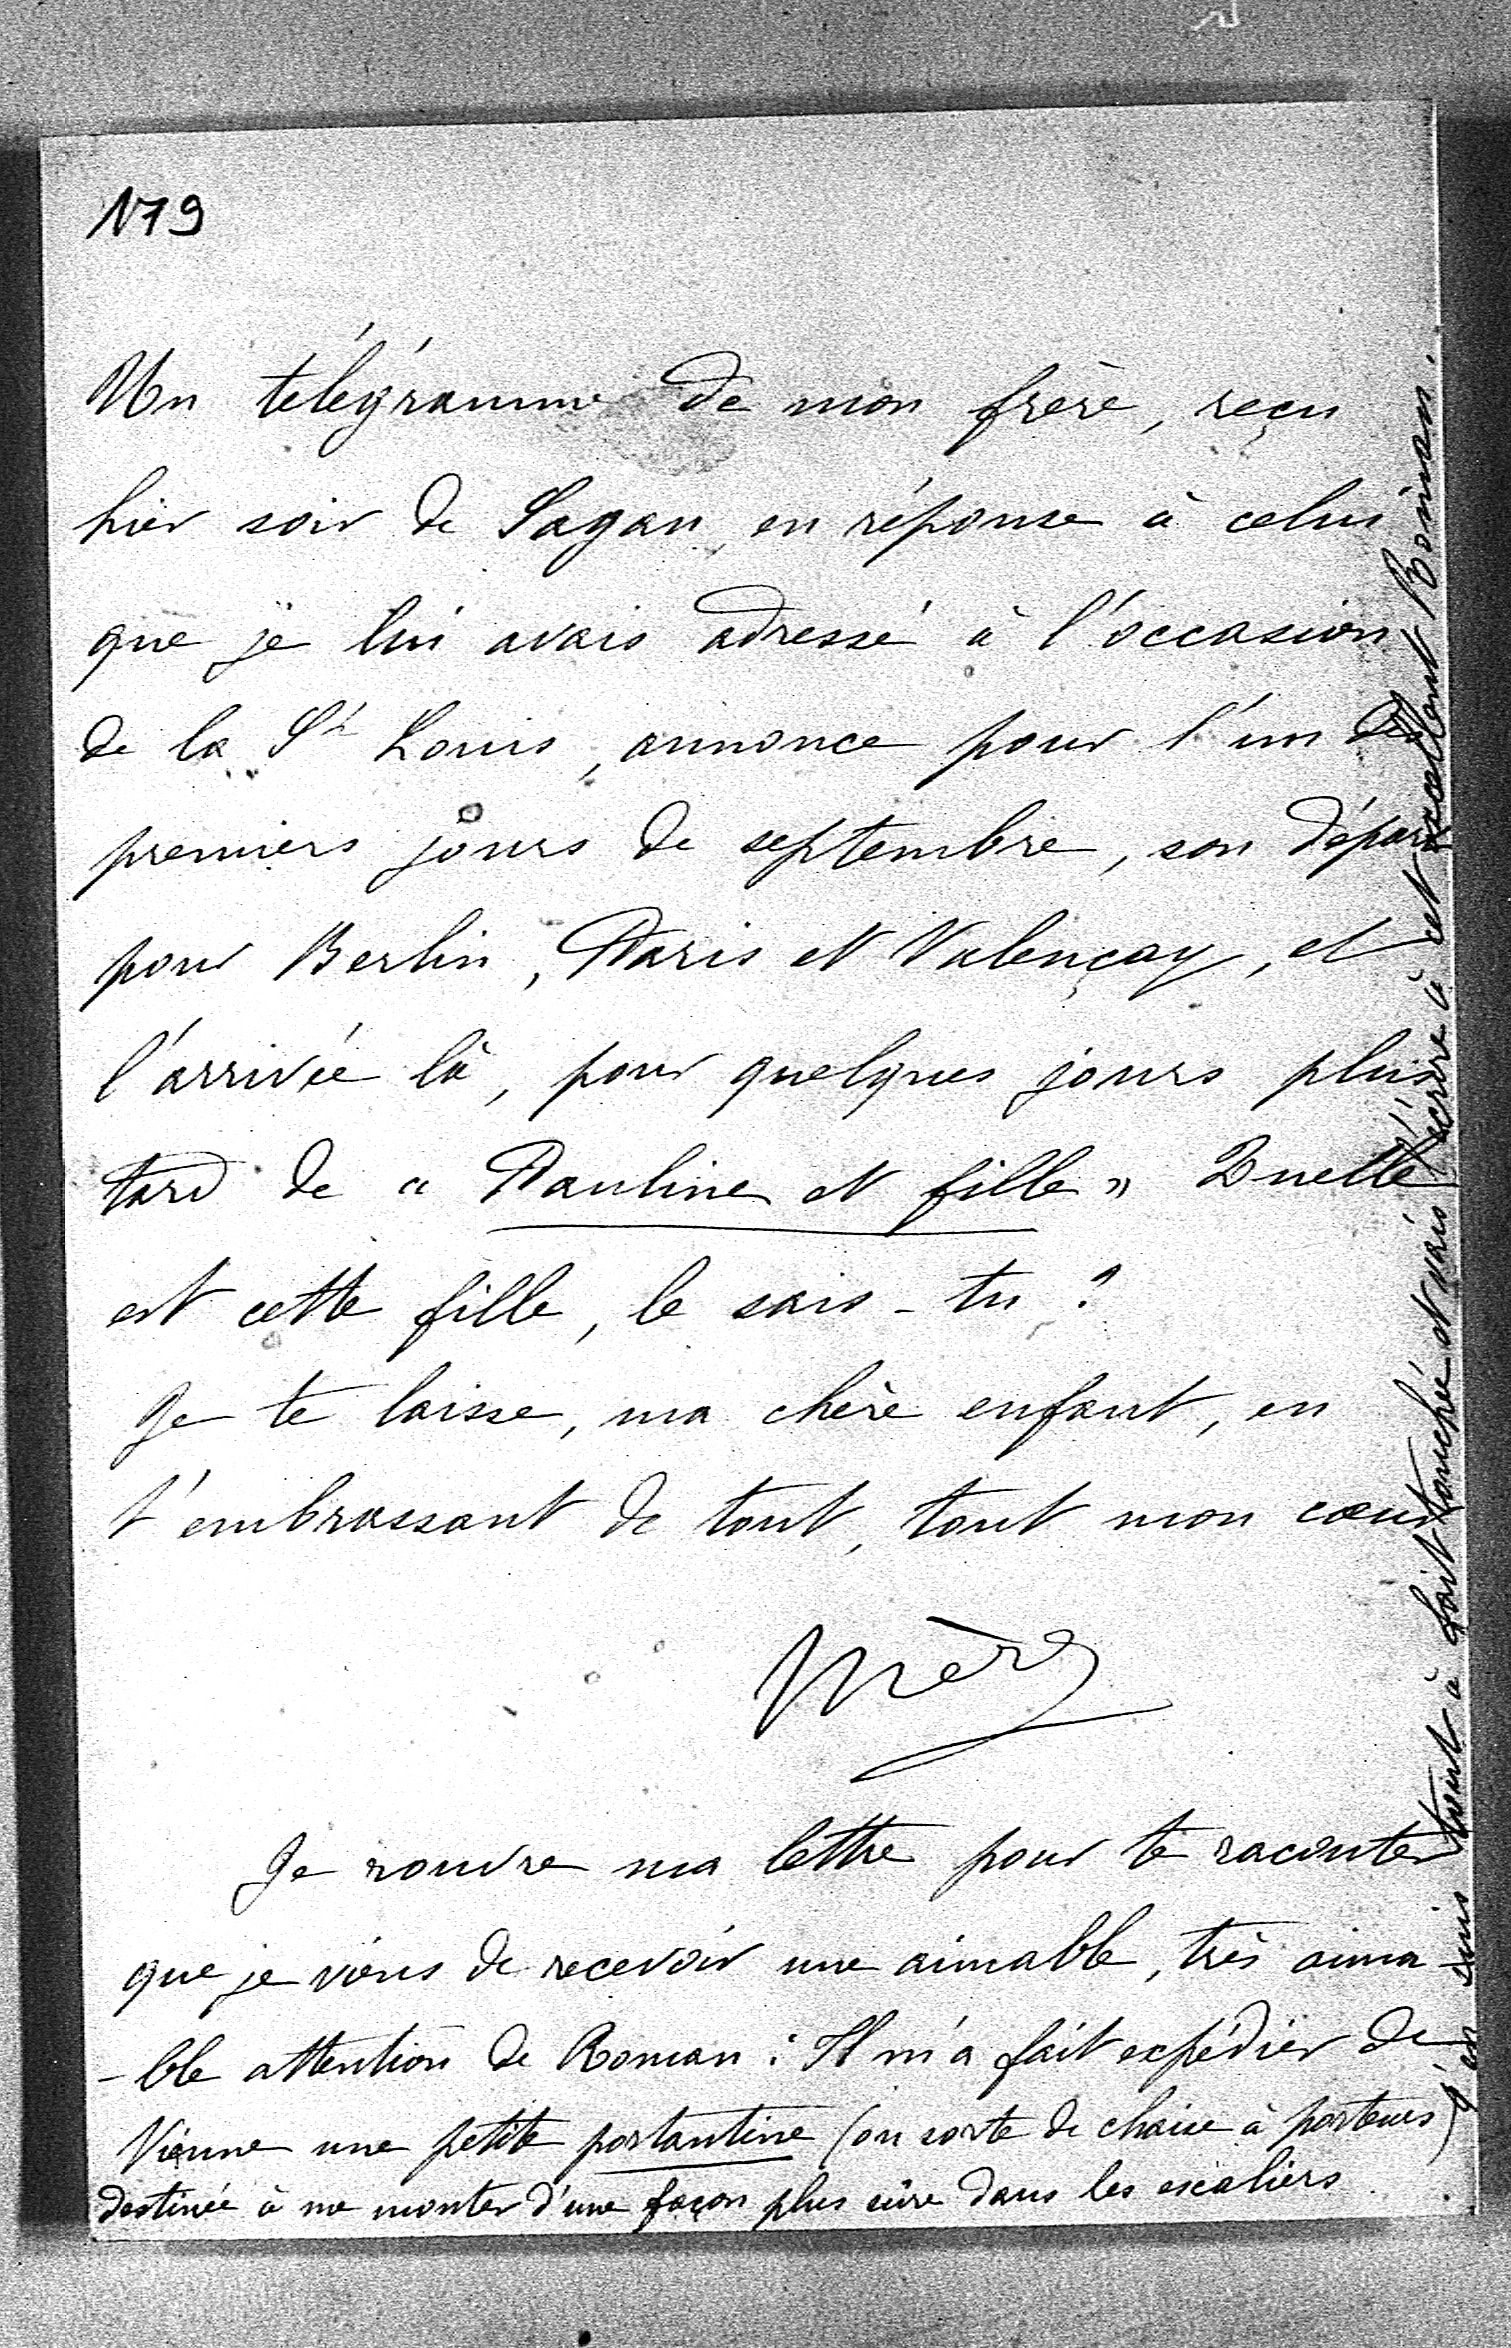 179
Un télégramme de mon frère, reçu
hier soir de Sagan en réponse à celui
que je lui avais adressé à l'occasion
de la St Louis, annonce pour l'un des
premiers jours de septembre, son départ
pour Berlin, Paris et Valençay, et
l'arrivée là, pour quelques jours plus
tard de « Pauline et fille » Quelle
est cette fille, le sais-tu ?
Je te laisse, ma chère enfant, en
t'embrassant de tout, tout mon cœur
Mère
Je rouvre ma lettre pour te raconter
que je viens de recevoir une aimable, très aima
-ble attention de Roman : Il m'a fait expédier de
Vienne une petite portantine (ou sorte de chaise à porteurs)
destinée à me monter d'une façon plus sûre dans les escaliers.
J'en suis tout à fait touchée et vais l'écrire à cet excellent Roman.